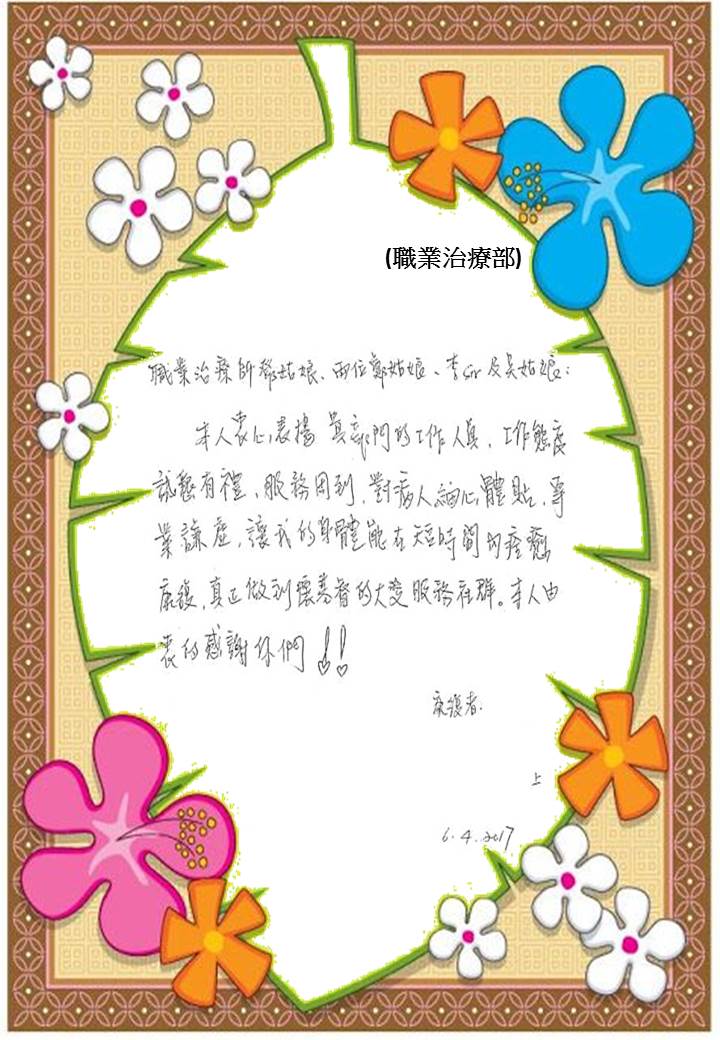 (職業治療部)
職業治療師鄧姑娘、兩位鄭姑娘、李sir及吳姑娘:
本人衷心表揚 貴部門的工作人員,工作態度
誠懇有禮、服務周到,對病人細心體貼,專
業謙虛,讓我的身體能在短時間內痊癒
康復,真正做到懷基督的大愛服務社群。本人由
衷的感謝你們!!
康復者
上
6.4.2017